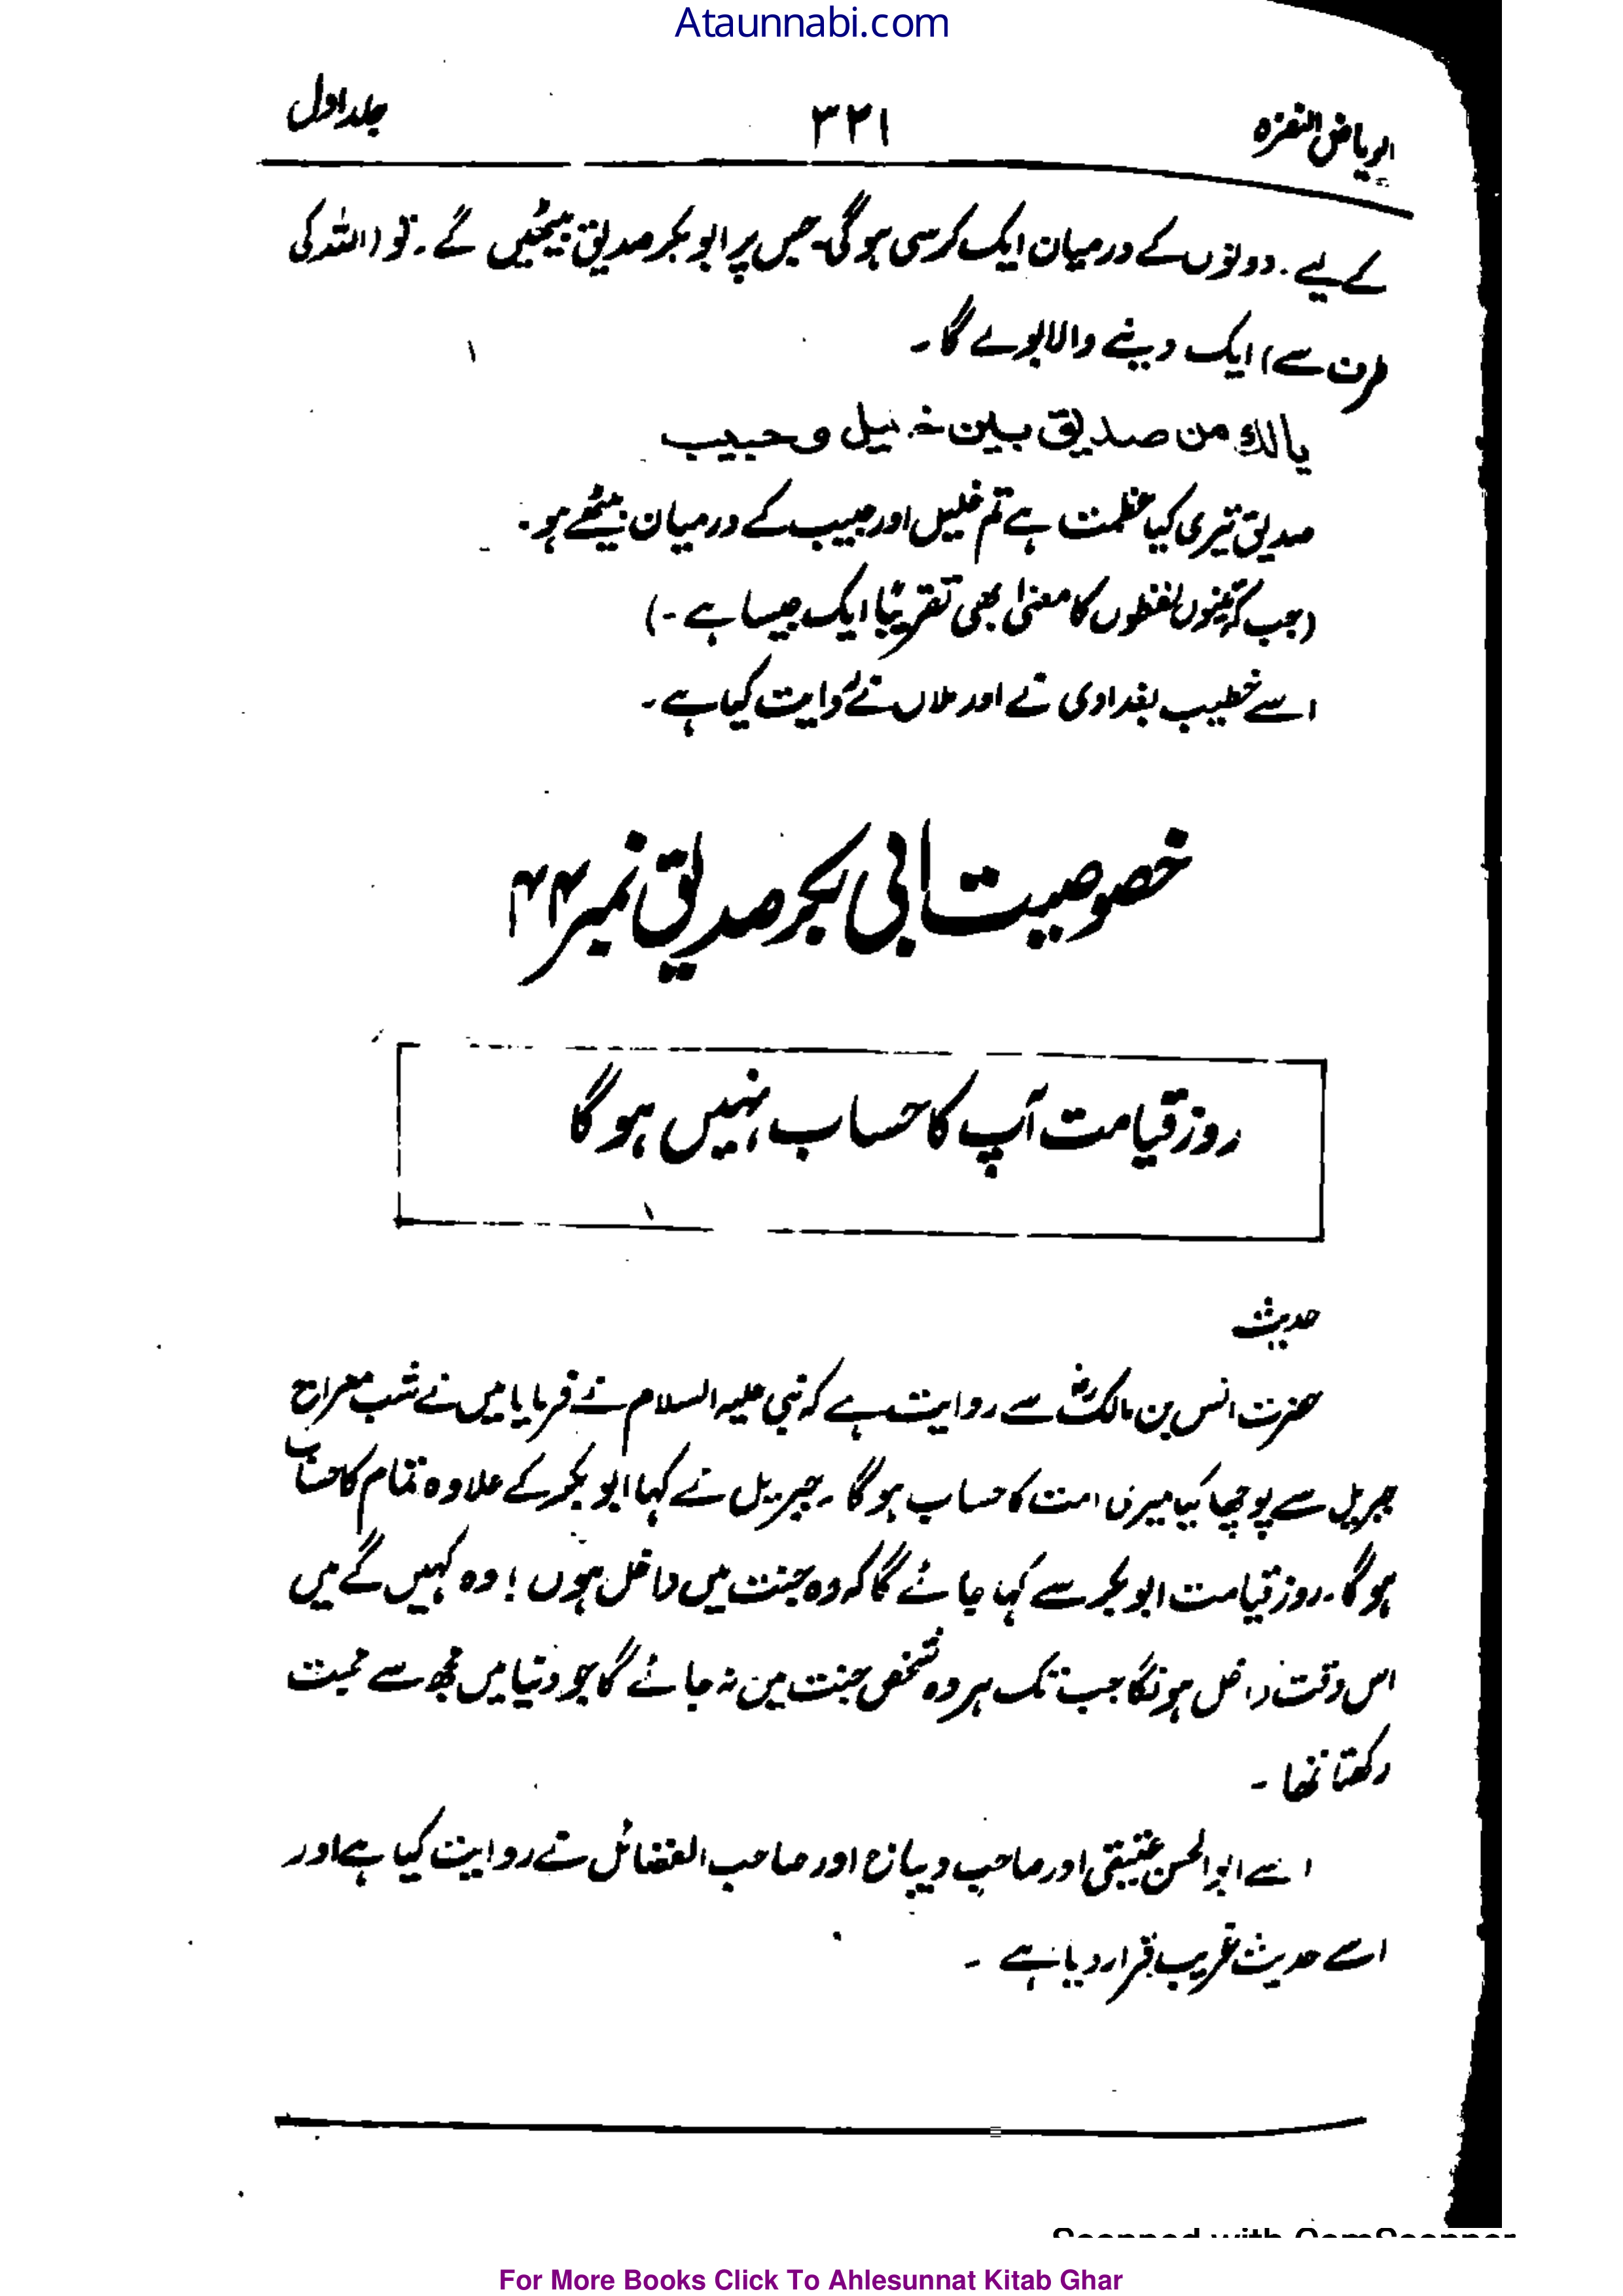 Ataunnabi.com
الریاض النضرہ ۳۲۱ جلد اول
کے لیے۔ دونوں کے درمیان ایک کرسی ہوگی۔ جس پر ابوبکر صدیق بیٹھیں گے۔ تو (اللہ کی
طرف سے) ایک دینے والا بولے گا۔
یالک من صدیق بین خلیل وحبیب
صدیق تیری کیا عظمت ہے تم خلیل اور حبیب کے درمیان بیٹھے ہو۔
(جب کہ تینوں لفظوں کا معنیٰ بھی تقریبًا ایک جیسا ہے۔)
اسے خطیب بغدادی نے اور ملاں نے روایت کیا ہے۔
خصوصیت ابی بکر صدیق نمبر ۴۴
روز قیامت آپ کا حساب نہیں ہوگا
حدیث
حضرت انس بن مالکؓ سے روایت ہے کہ نبی علیہ السلام نے فرمایا میں نے شب معراج
جبریل سے پوچھا کیا میری امت کا حساب ہوگا۔ جبریل نے کہا ابوبکر کے علاوہ تمام کا حساب
ہوگا۔ روز قیامت ابوبکر سے کہا جائے گا کہ وہ جنت میں داخل ہوں! وہ کہیں گے میں
اس وقت داخل ہونگا جب تک ہر وہ شخص جنت میں نہ جائے گا جو دنیا میں مجھ سے محبت
رکھتا تھا۔
اسے ابوالحسن عتیقی اور صاحب دیباج اور صاحب الفضائل نے روایت کیا ہے اور
اسے حدیث غریب قرار دیا ہے۔
Scanned with CamScanner
For More Books Click To Ahlesunnat Kitab Ghar